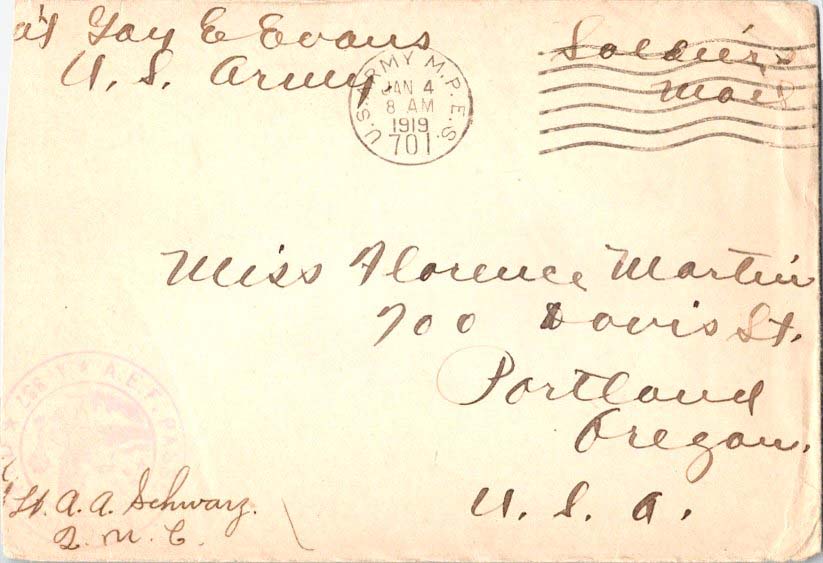 Gay E Evans
U. S. Army
Soldier's
Mail
U.S. ARMY M.P.E.S.
JAN 4
8 AM
1919
701
Miss Florence Martin
700 Davis St.
Portland
Oregon.
U. S. A.
A.E.F. PA
Lt. A. A. Schwarz.
Q. M. C.